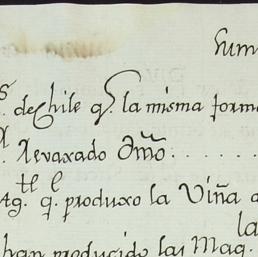 Sum
s. de Chile q. la misma forma
. Revaxado Dño . . . . . .
tt l
Ag. q. produxo la Viña
la
han producido las Maq.